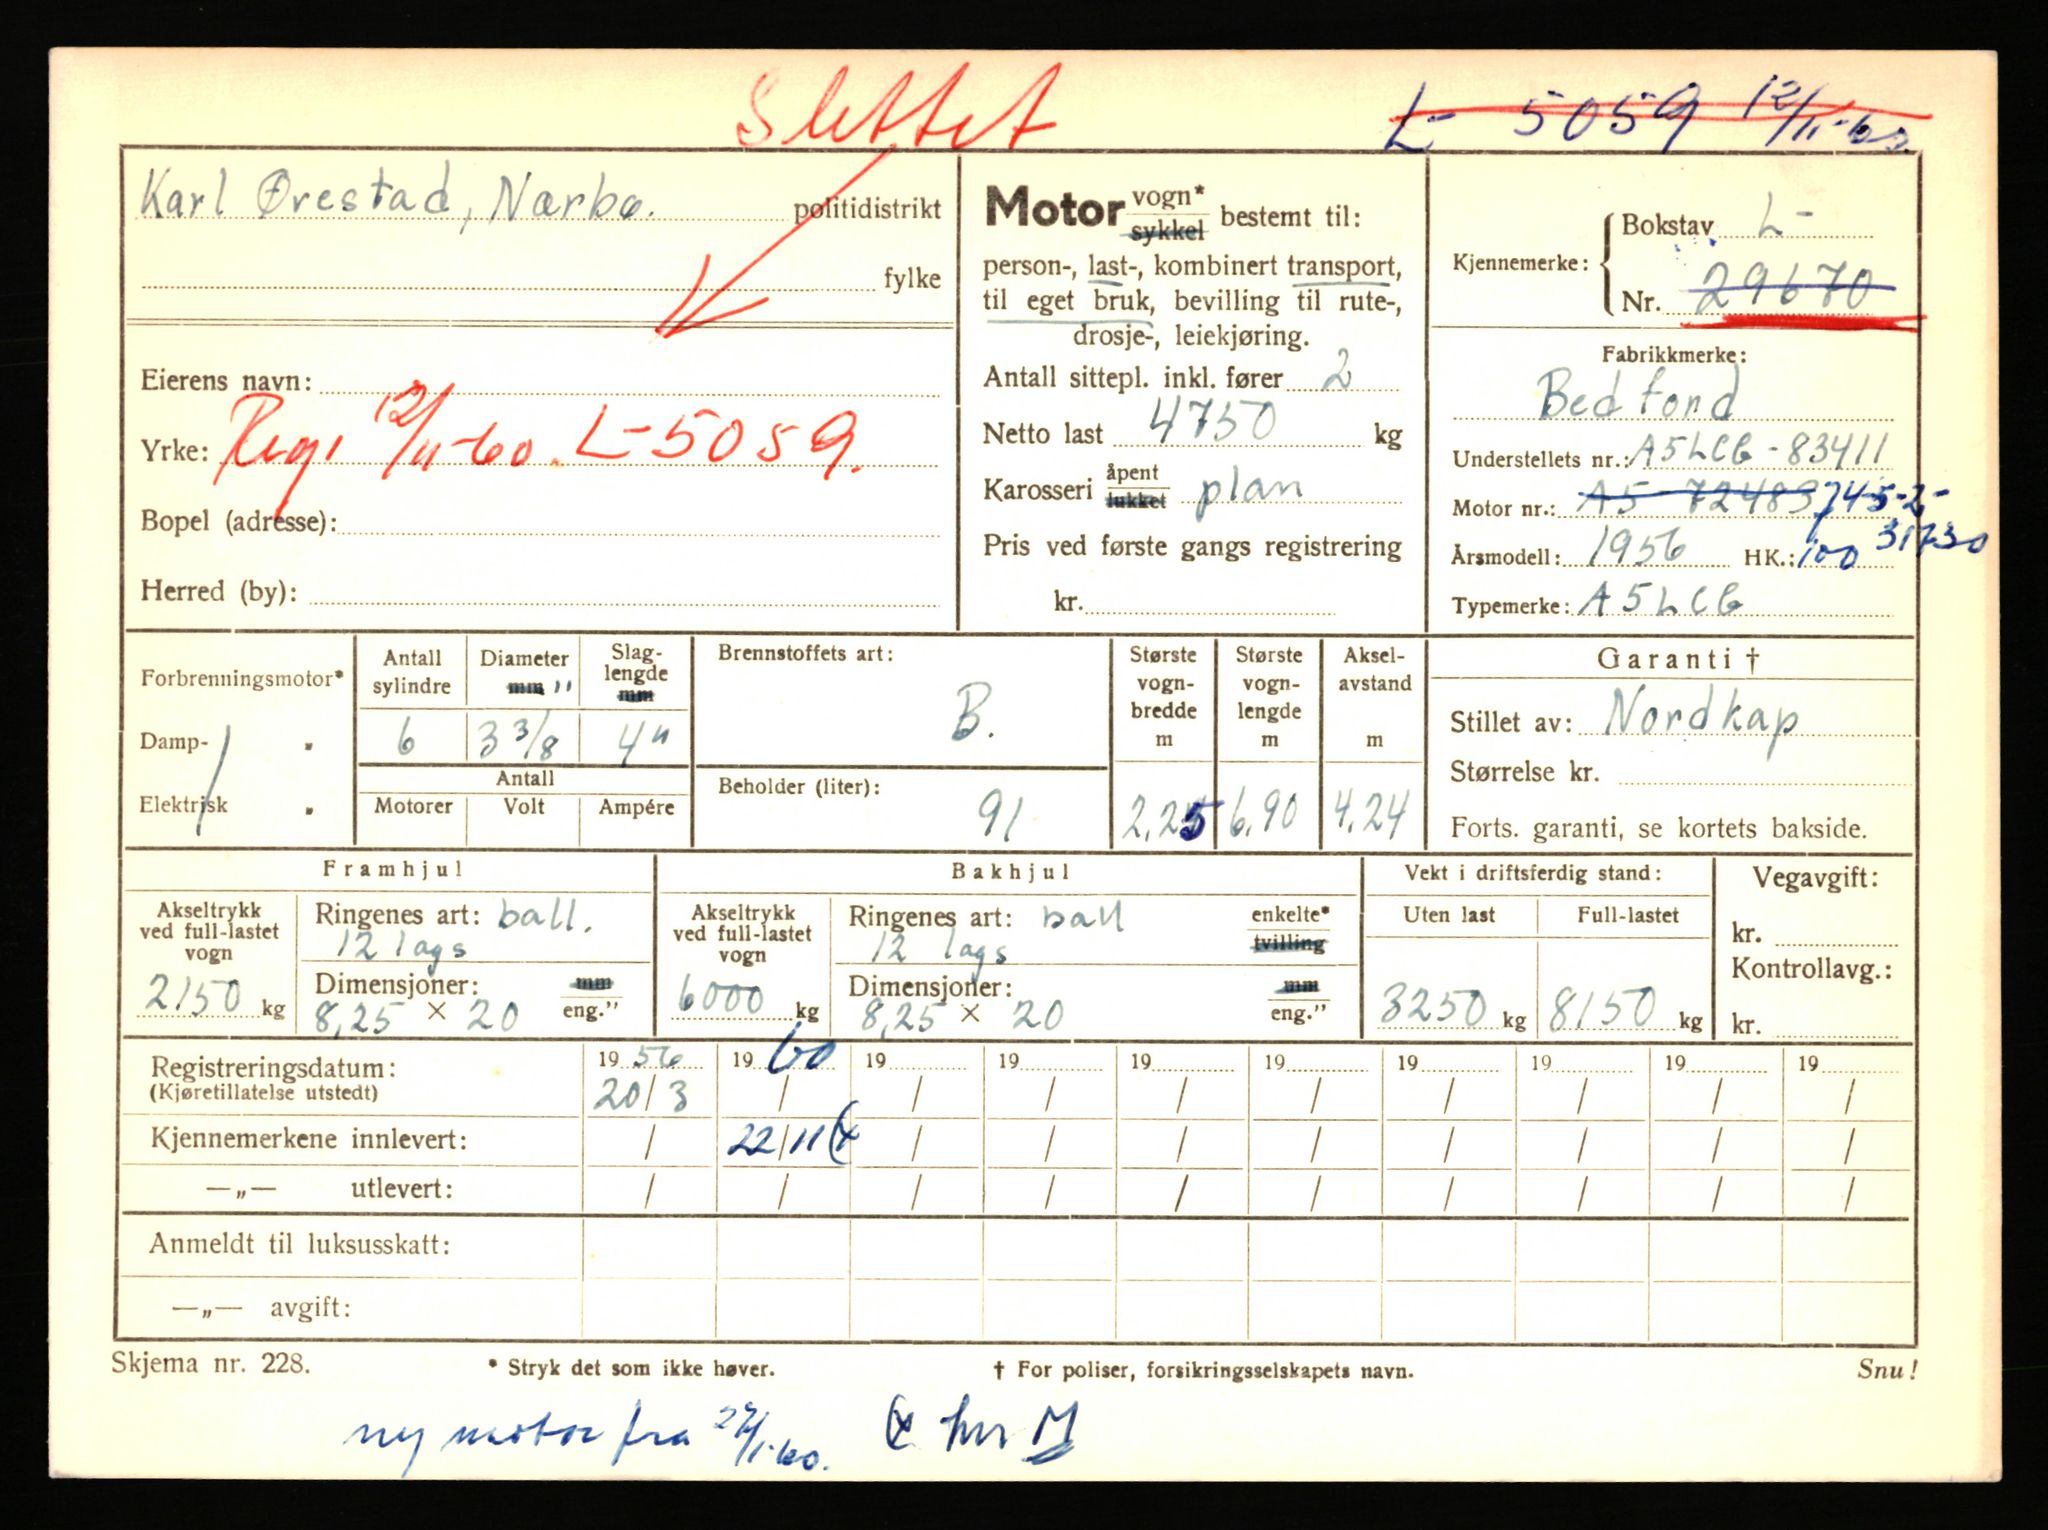 Slettet
L- 5059 12/11-60.
Karl Ørestad, Nærbø. politidistrikt
fylke
Eierens navn:
Yrke: Reg. 12/11-60. L-5059.
Bopel (adresse):
Herred (by):
Motor vogn* sykkel bestemt til:
person-, last-, kombinert transport,
til eget bruk, bevilling til rute-,
drosje-, leiekjøring.
Antall sittepl. inkl. fører 2
Netto last 4750 kg
Karosseri åpent lukket plan
Pris ved første gangs registrering
kr.
Kjennemerke: Bokstav L-
Nr. 29670
Fabrikkmerke:
Bedford
Understellets nr.: A5LCG-83411
Motor nr.: A5-72483 745-2-
31730
Årsmodell: 1956 HK.: 100
Typemerke: A5LCG
Forbrenningsmotor*
Damp- "
Elektrisk "
Antall sylindre 6
Diameter mm " 3 3/8
Slag-lengde mm 4"
Antall
Motorer Volt Ampére
Brennstoffets art:
B.
Beholder (liter):
91
Største vogn-bredde m 2.25
Største vogn-lengde m 6.90
Aksel-avstand m 4.24
Garanti †
Stillet av: Nordkap
Størrelse kr.
Forts. garanti, se kortets bakside.
Framhjul
Akseltrykk ved full-lastet vogn
2150 kg
Ringenes art: ball.
12 lags
Dimensjoner: mm eng."
8,25 × 20
Bakhjul
Akseltrykk ved full-lastet vogn
6000 kg
Ringenes art: ball enkelte* tvilling
12 lags
Dimensjoner: mm eng."
8,25 × 20
Vekt i driftsferdig stand:
Uten last Full-lastet
3250 kg 8150 kg
Vegavgift:
kr.
Kontrollavg.:
kr.
Registreringsdatum: 19 56 19 60 19 19 19 19 19 19 19 19
(Kjøretillatelse utstedt) 20/3 / / / / / / / / /
Kjennemerkene innlevert: / 22/11 (x / / / / / / / /
—„— utlevert: / / / / / / / / / /
Anmeldt til luksusskatt:
—„— avgift:
Skjema nr. 228. * Stryk det som ikke høver. † For poliser, forsikringsselskapets navn. Snu!
ny motor fra